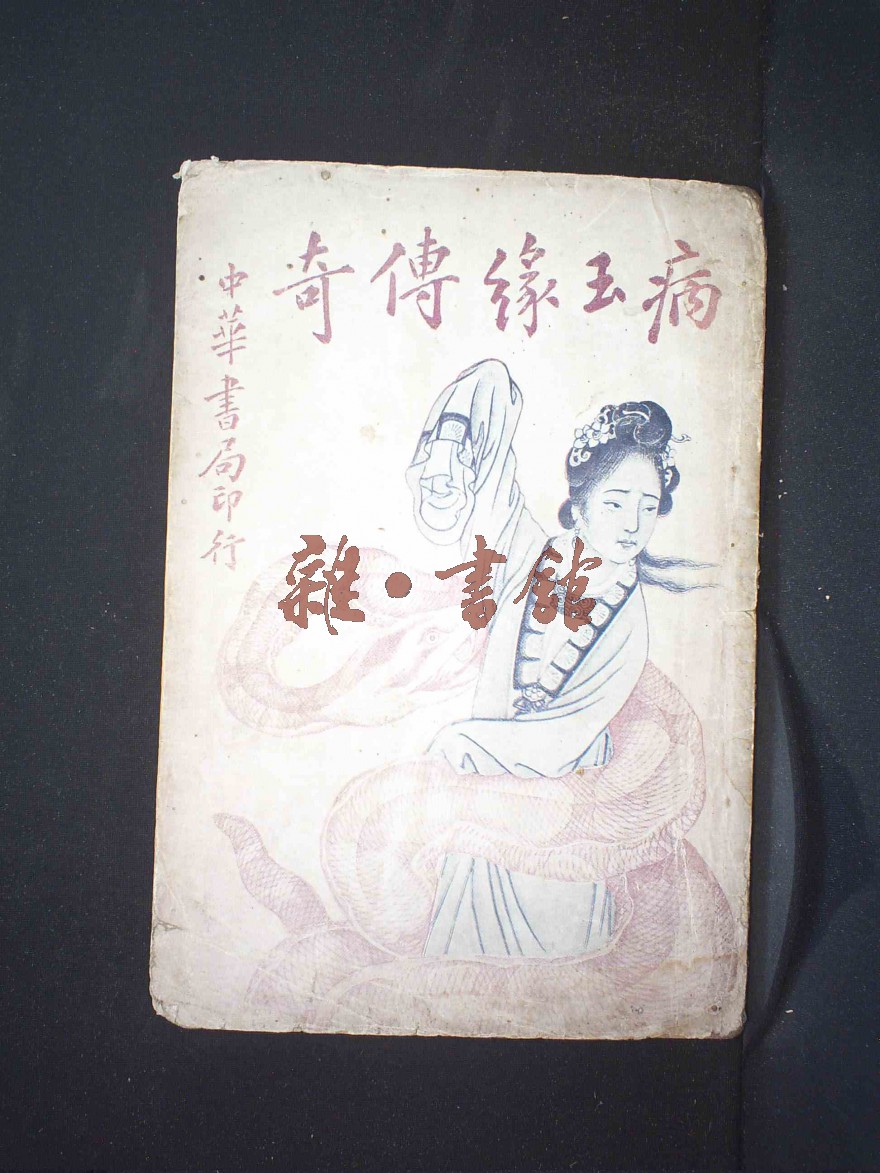 病玉緣傳奇
中華書局印行
雜·書館